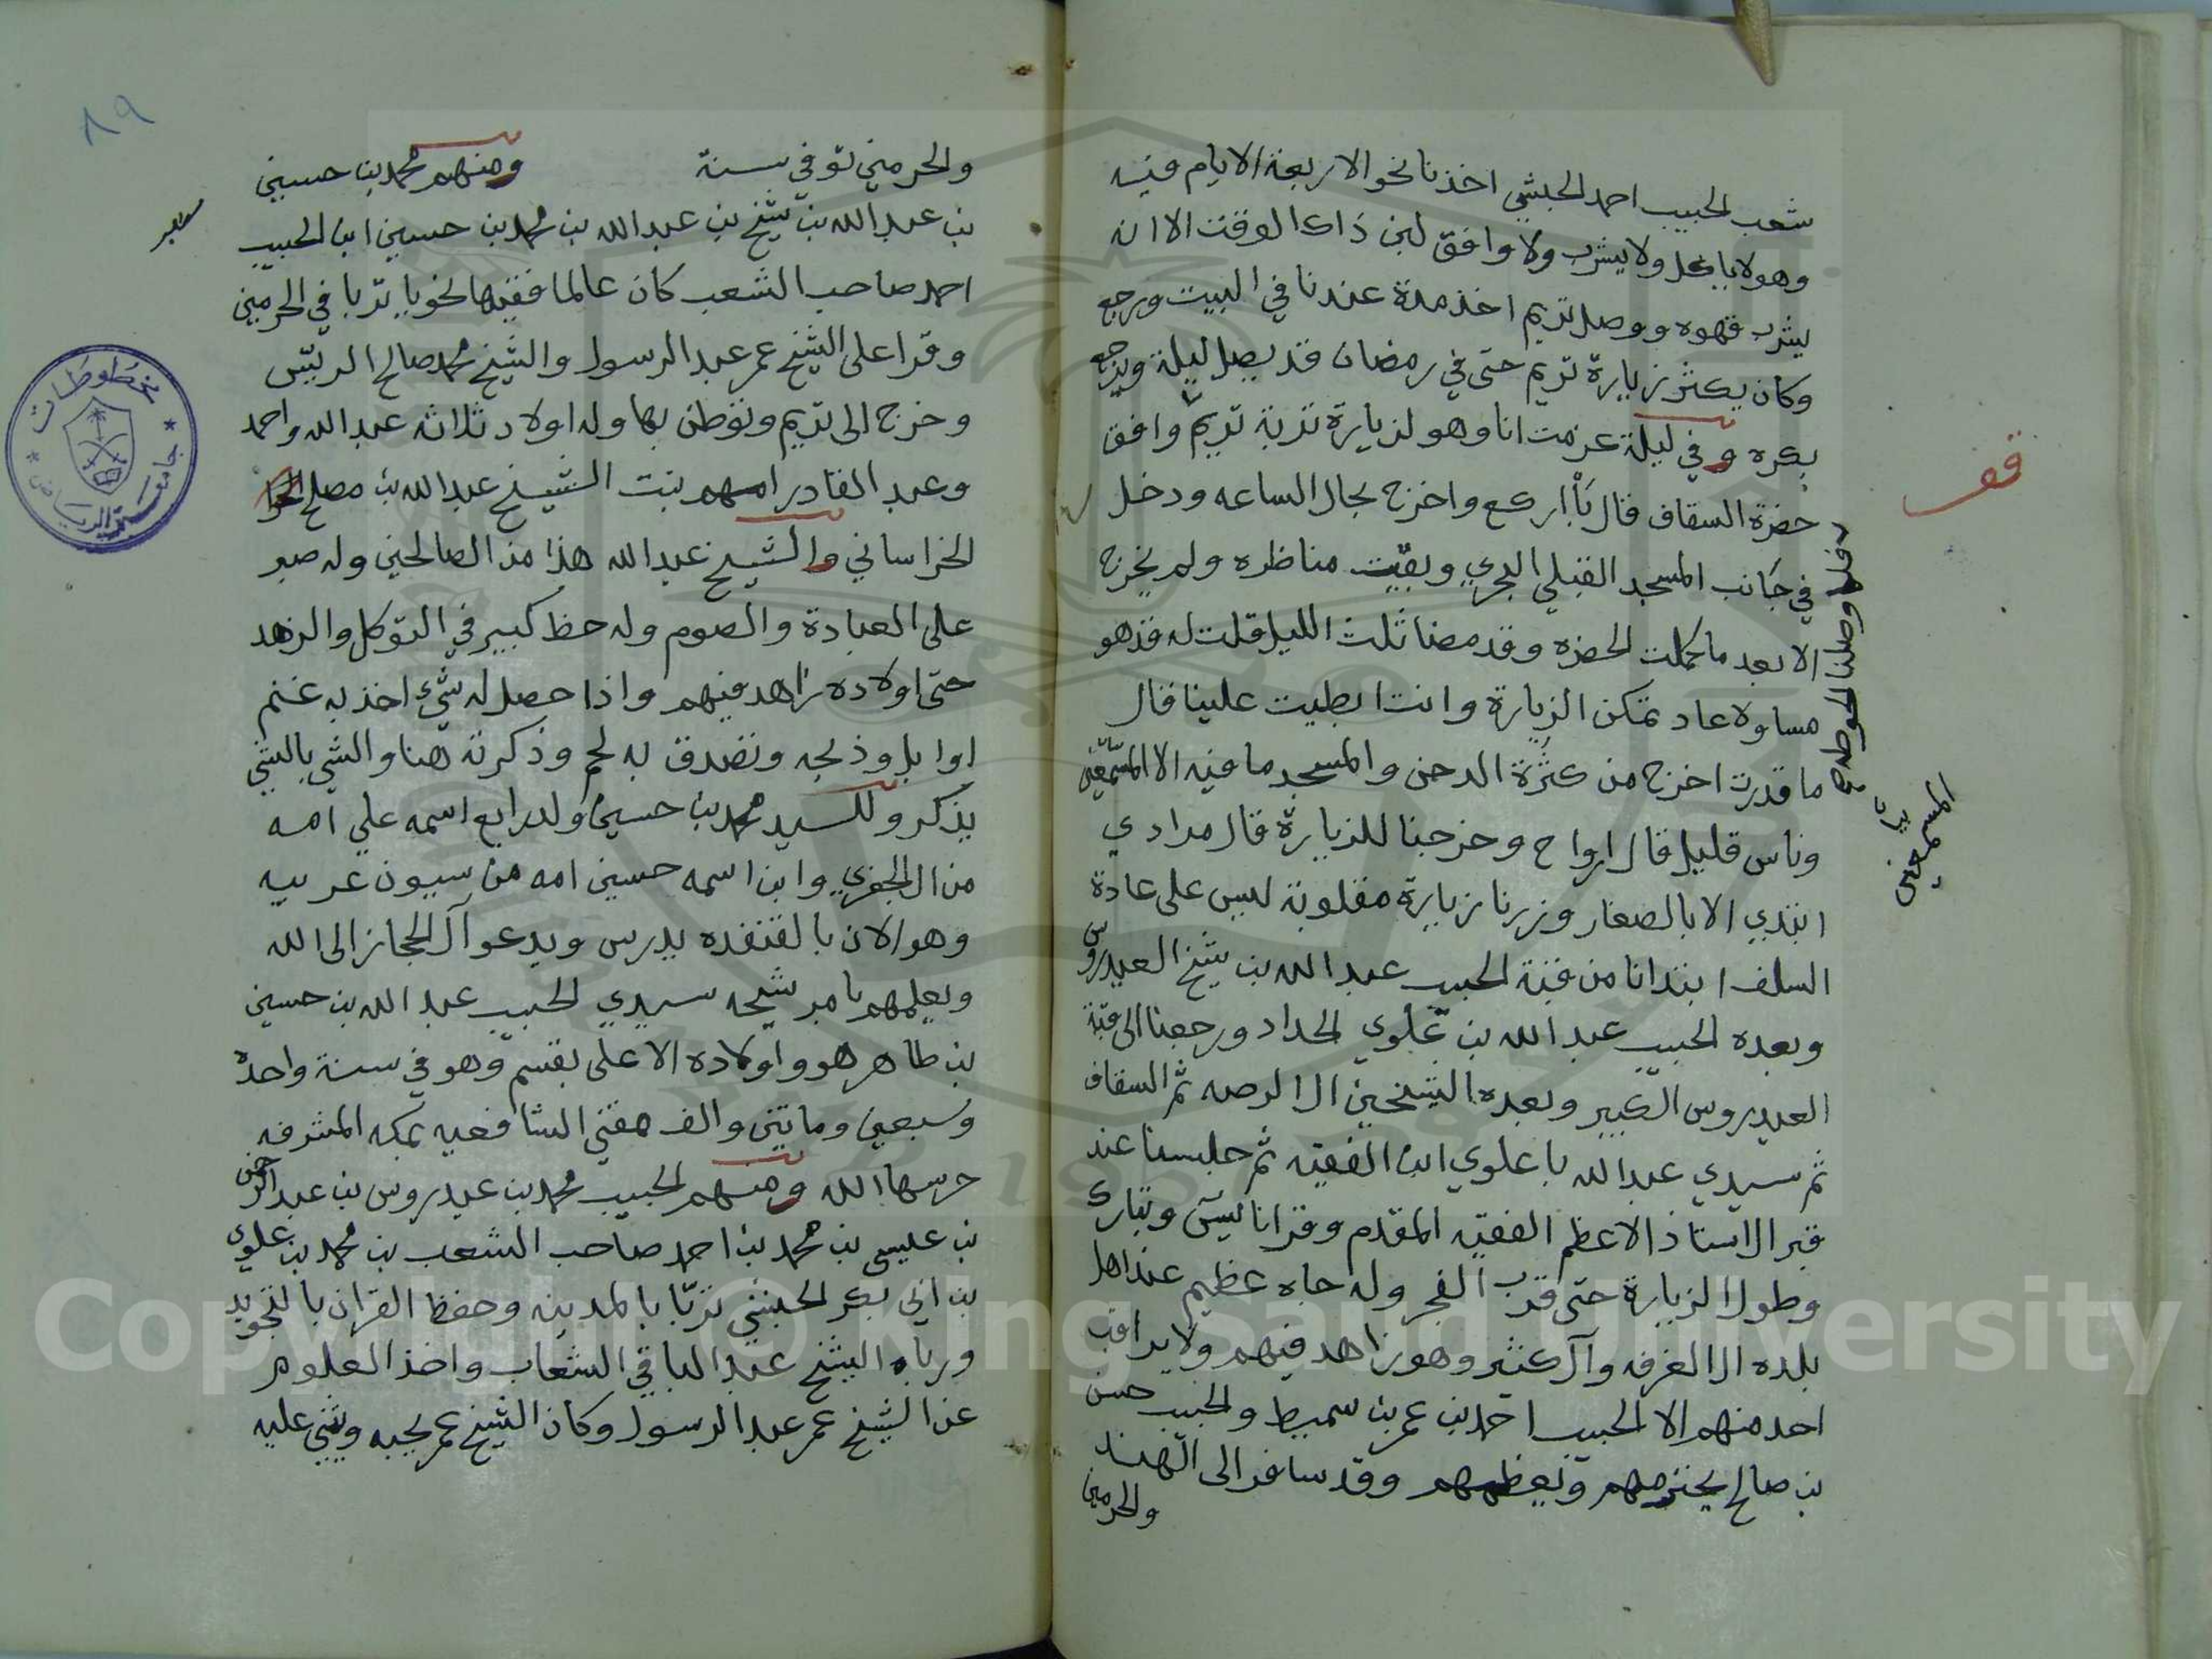 شعب الحبيب احمد الحبشي اخذنا نحو الاربعة الايام فيه
وهو لا ياكل ولا يشرب ولا وافق لبن ذاك الوقت الا انه
يشرب قهوه ووصل تريم اخذ مدة عندنا في البيت ورجع
وكان يكثر زيارة تريم حتى في رمضان قد يصل ليلة ويرجع
بكره وفي ليلة عزمت انا وهو لزيارة تربة تريم وافق
حضرة السقاف قال بأ اركع واخرج بحال الساعه ودخل
في جانب المسجد القبلي البحري وبقيت مناظره ولم يخرج
الا بعد ما كملت الحضره وقد مضا ثلث الليل قلت له قد هو
مساولا عاد تمكن الزيارة وانت ابطيت علينا قال
ما قدرت اخرج من كثرة الدحن والمسجد ما فيه الا المسمعين
وناس قليل قال ارواح وخرجنا للزيارة قال مرادي
ابتدي الا بالصغار وزرنا زيارة مقلوبة ليس على عادة
السلف ابتدانا من قبة الحبيب عبد الله بن شيخ العيدروس
وبعده الحبيب عبد الله بن علوي الحداد ورجعنا الى قبة
العيدروس الكبير وبعده الشيخين ال الرصه ثم السقاف
ثم سيدي عبد الله باعلوي ابن الفقيه ثم جلسنا عند
قبر الاستاذ الاعظم الفقيه المقدم وقرانا يس وتبارك
وطول الزيارة حتى قرب الفجر وله جاه عظيم عند اهل
بلده ال الغرفه وآل كثير وهو زاهد فيهم ولا يراقب
احد منهم الا الحبيب احمد بن عمر بن سميط والحبيب حسن
بن صالح يحترمهم ويعظمهم وقد سافر الى الهند
والحرمين
قف
المسمعين
٨٩
والحرمين توفي سنة ومنهم محمد بن حسين
بن عبد الله بن شيخ بن عبد الله بن محمد بن حسين ابن الحبيب
احمد صاحب الشعب كان عالما فقيها نحويا تربا في الحرمين
وقرا على الشيخ عمر عبد الرسول والشيخ محمد صالح الريس
وخرج الى تريم وتوطن بها وله اولاد ثلاثه عبد الله واحمد
وعبد القادر امهم بنت الشيخ عبد الله بن مصلح
الخراساني والشيخ عبد الله هذا من الصالحين وله صبر
على العبادة والصوم وله حظ كبير في التوكل والزهد
حتى اولاده زاهد فيهم واذا حصل له شيء اخذ به غنم
او ابل وذبحه وتصدق به لحم وذكرته هنا والشي بالشي
يذكر وللسيد محمد بن حسين ولد رابع اسمه علي امه
من ال الجفري وابن اسمه حسين امه من سيون عربيه
وهو الان بالقنفده يدرس ويدعو آل الحجاز الى الله
ويعلمهم بامر شيخه سيدي الحبيب عبد الله بن حسين
بن طاهر هو واولاده الا على بقسم وهو في سنة واحده
وسبعين وماتين والف مفتي الشافعيه بمكه المشرفه
حرسها الله ومنهم الحبيب محمد بن عيدروس بن عبد الرحمن
بن عيسى بن محمد بن احمد صاحب الشعب بن محمد بن علوي
بن ابي بكر الحبشي تربا بالمدينه وحفظ القران بالتجويد
ورباه الشيخ عبد الباقي الشعاب واخذ العلوم
عن الشيخ عمر عبد الرسول وكان الشيخ عمر يحبه ويثني عليه
مخطوطات
جامعة الرياض
Copyright © King Saud University